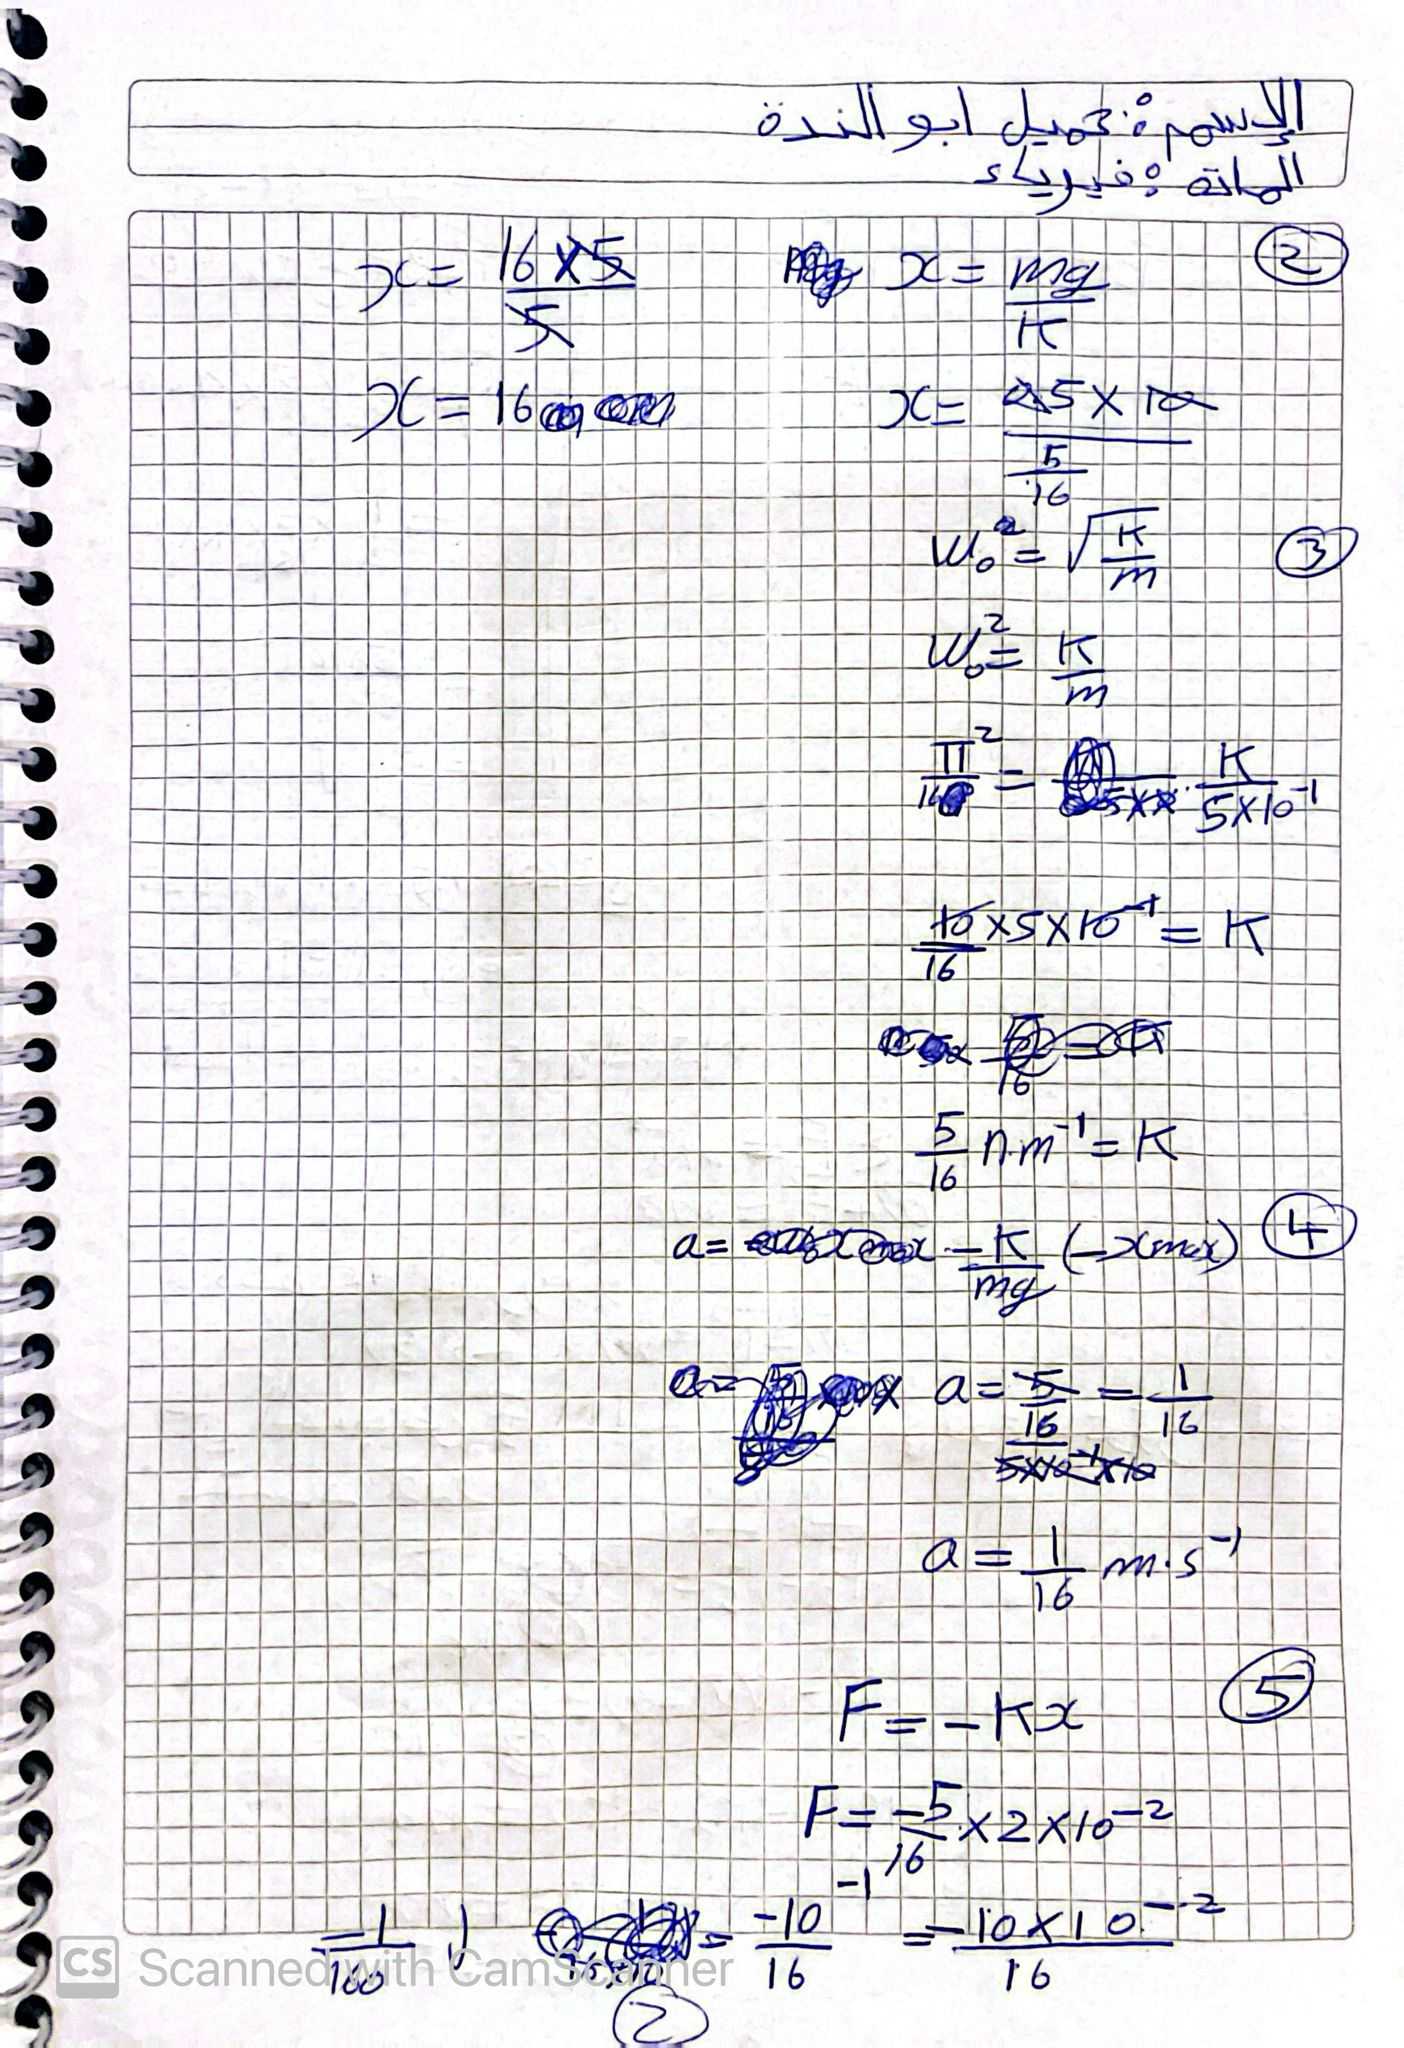 الإسم: جميل ابو الندة
المادة: فيزياء
②
x = mg/K
x = 0.5 × 10 / 5/16
x = 16 × 5 / 5
x = 16
③
W₀ = √K/m
W₀² = K/m
π²/16 = K / 5×10⁻¹
10/16 × 5 × 10⁻¹ = K
5/16 n.m⁻¹ = K
④
a = -K/mg (-xmax)
a = 5/16 / 5×10⁻¹×10 = 1/16
a = 1/16 m.s⁻¹
⑤
F = -Kx
F = -5/16 × 2 × 10⁻²
= -10 × 10⁻² / 16
= -10⁻¹ / 16
-1/160
②
CS Scanned with CamScanner